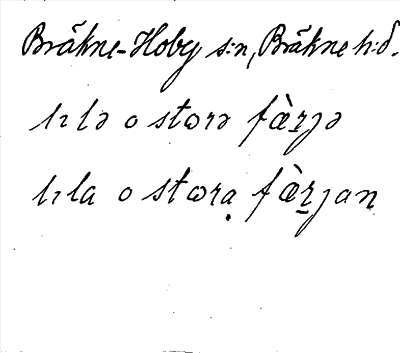 Bräkne-Hoby s:n, Bräkne h:d.
lɩlə o stωrə fæ̀r̠ȷə
lɩla o stωrạ fæ̀r̠ȷan